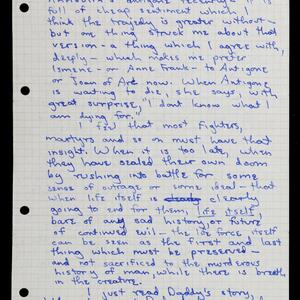 full of cheap sentiment which I
think the tragedy is greater without —
but one thing struck me about that
version — a thing which I agree with,
deeply — which makes me prefer
Ismene — or Anne Frank — to Antigone
or Joan of Arc now. When Antigone
is waiting to die, she says, with
great surprise, "I dont know what I
am dying for."
I feel that most fighters,
martyrs and so on must have that
insight. When it is too late, when
they have sealed their own doom
by rushing into battle for some
sense of outrage or some ideal — that
when life itself is clearly
going to end for them, life itself,
bare of any sad history or future
of continued evil — the life force itself
can be seen as the first and last
thing which must be preserved —
and not sacrificed to the murderous
history of man, while there is breath
in the creature.
I just read Daddy's story,